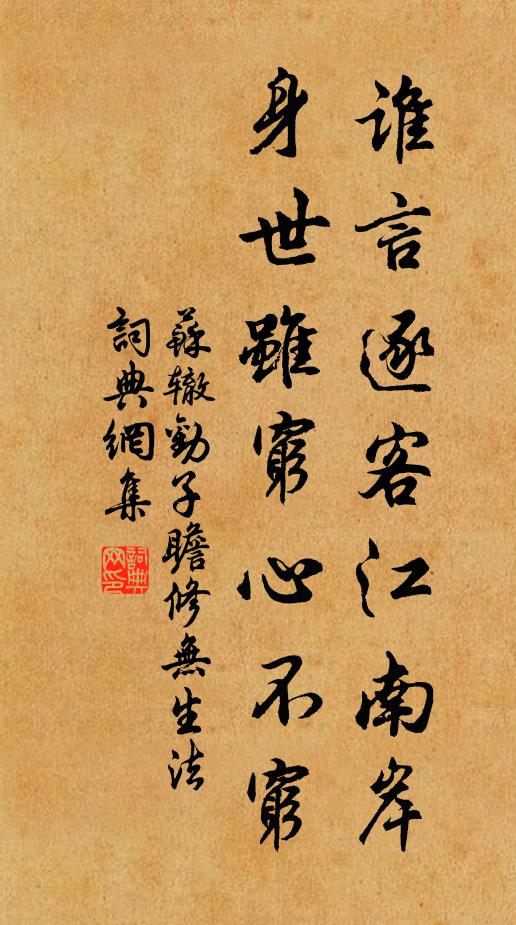 誰言逐客江南岸
身世雖窮心不窮
蘇辙勸子瞻修無生法
詞典網集
詞典网印